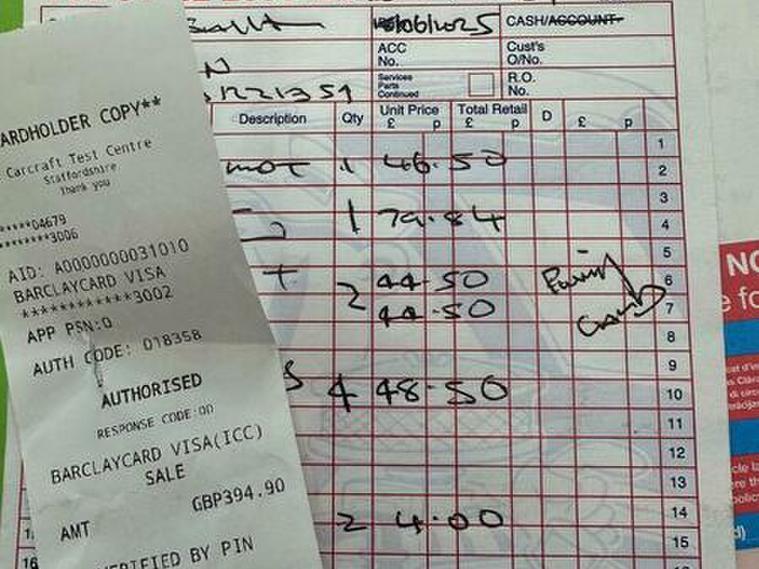 **CARDHOLDER COPY**
Carcraft Test Centre
Staffordshire
Thank you
*****04679
********3006
AID: A0000000031010
BARCLAYCARD VISA
************3002
APP PSN:0
AUTH CODE: 018358
AUTHORISED
RESPONSE CODE:00
BARCLAYCARD VISA(ICC)
SALE
GBP394.90
AMT
VERIFIED BY PIN
/06/2025 CASH/ACCOUNT
ACC No. Cust's O/No.
Services Parts Continued R.O. No.
1221359
Description Qty Unit Price £ p Total Retail £ p D £ p
1
MOT 1 46.50 2
3
1 79.84 4
5
2 44.50 6
44.50 7
8
9
4 48.50 10
11
12
13
2 4.00 14
15
16
NO